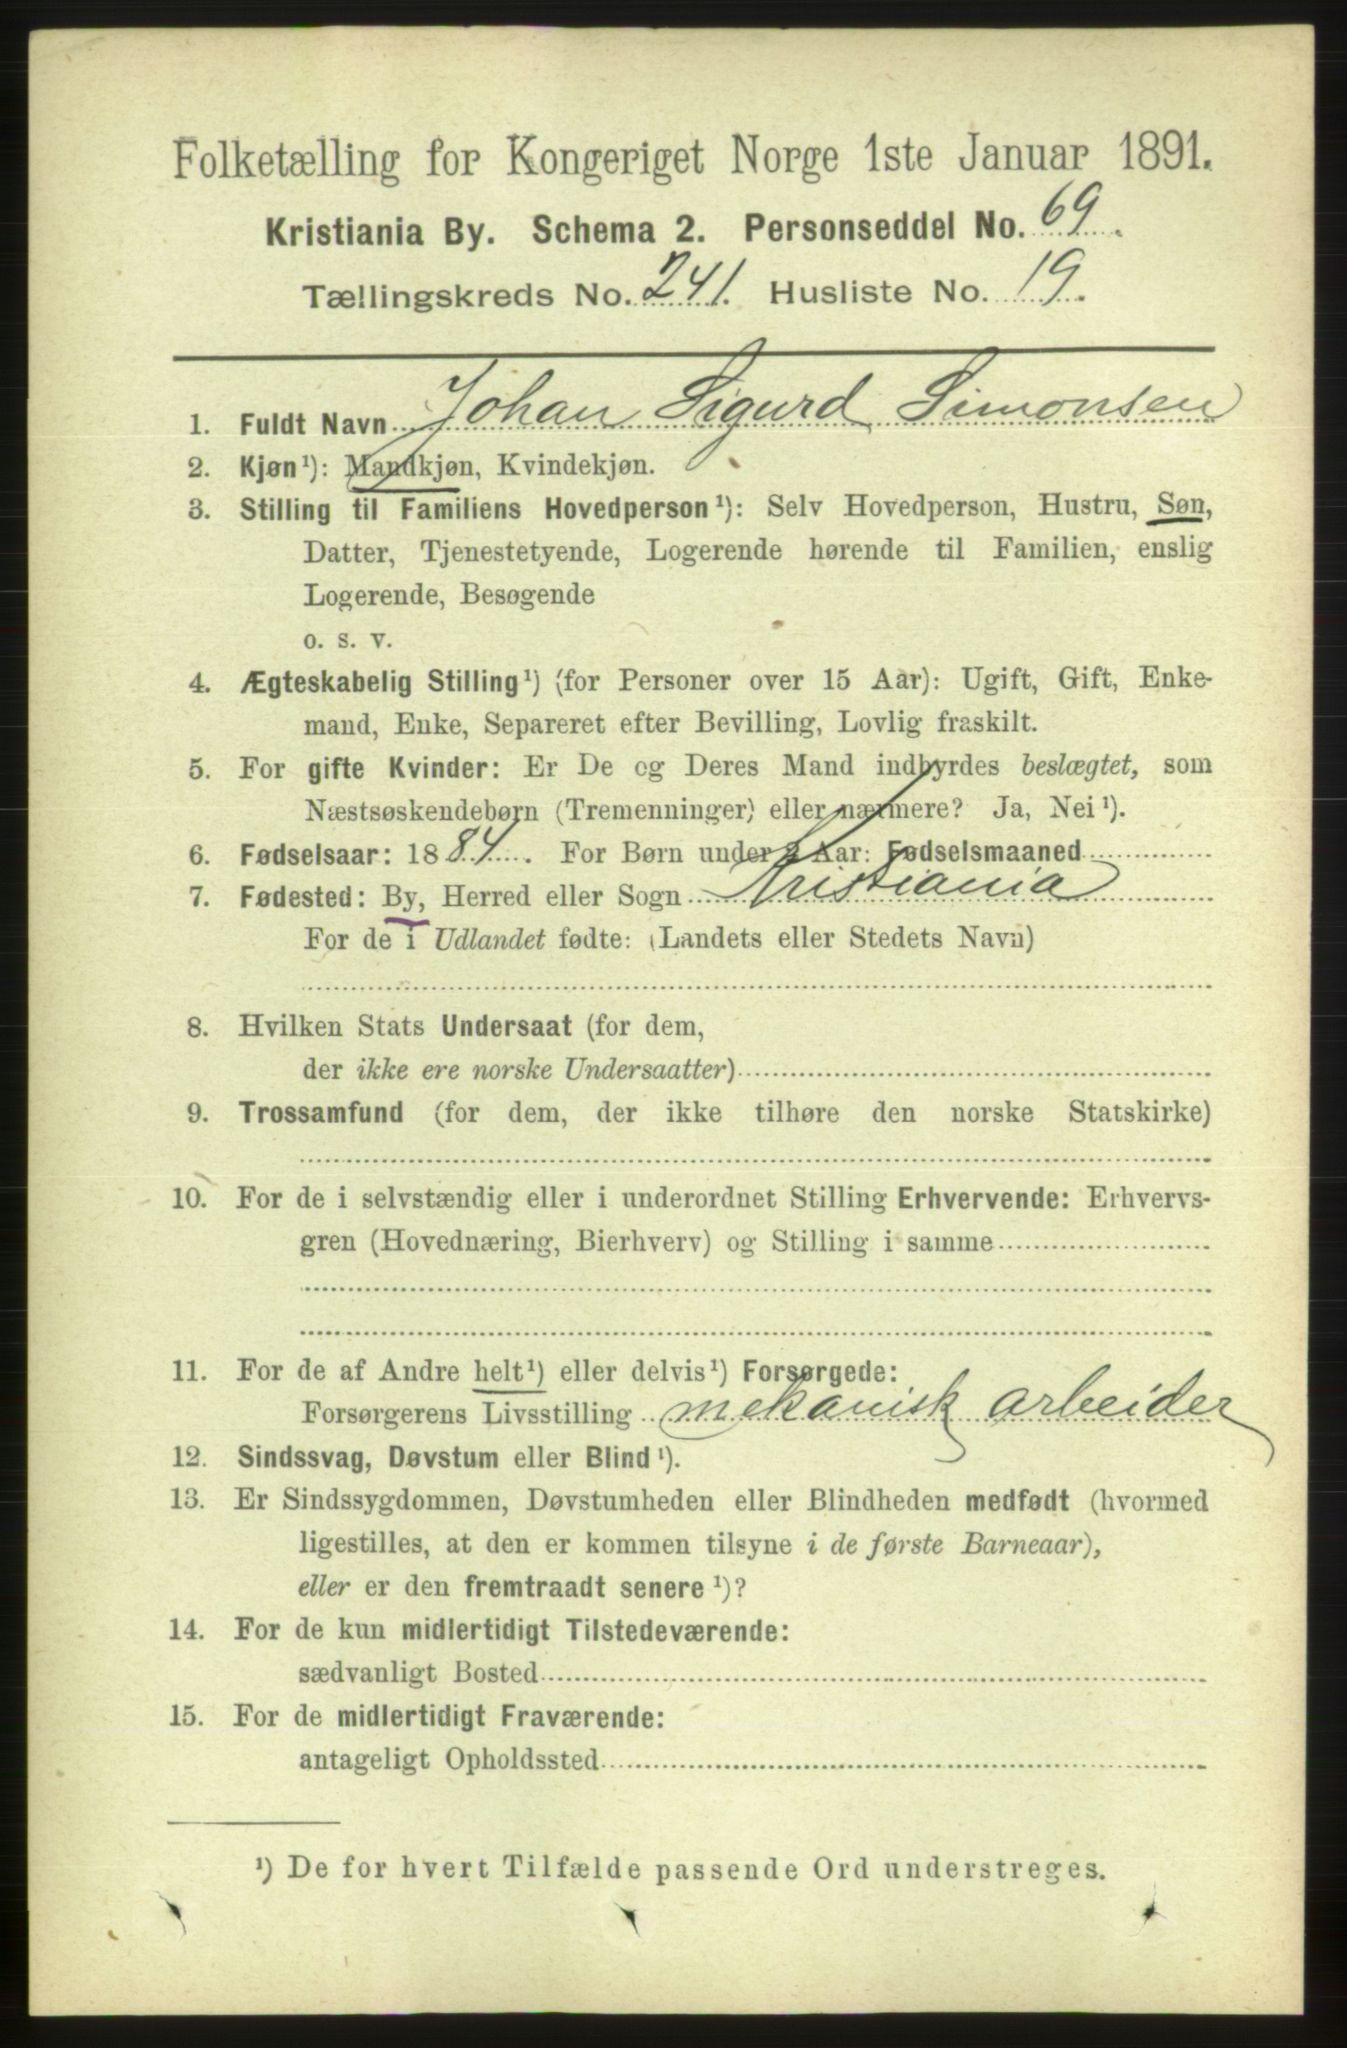 Folketælling for Kongeriget Norge 1ste Januar 1891.
Kristiania By. Schema 2. Personseddel No. 69.
Tællingskreds No. 241. Husliste No. 19.
1. Fuldt Navn Johan Sigurd Simonsen
2. Kjøn¹): Mandkjøn, Kvindekjøn.
3. Stilling til Familiens Hovedperson¹): Selv Hovedperson, Hustru, Søn,
Datter, Tjenestetyende, Logerende hørende til Familien, enslig
Logerende, Besøgende
o. s. v.
4. Ægteskabelig Stilling¹) (for Personer over 15 Aar): Ugift, Gift, Enke-
mand, Enke, Separeret efter Bevilling, Lovlig fraskilt.
5. For gifte Kvinder: Er De og Deres Mand indbyrdes beslægtet, som
Næstsøskendebørn (Tremenninger) eller nærmere? Ja, Nei¹).
6. Fødselsaar: 1884. For Børn under 2 Aar: Fødselsmaaned
7. Fødested: By, Herred eller Sogn Kristiania
For de i Udlandet fødte: (Landets eller Stedets Navn)
8. Hvilken Stats Undersaat (for dem,
der ikke ere norske Undersaatter)
9. Trossamfund (for dem, der ikke tilhøre den norske Statskirke)
10. For de i selvstændig eller i underordnet Stilling Erhvervende: Erhvervs-
gren (Hovednæring, Bierhverv) og Stilling i samme
11. For de af Andre helt¹) eller delvis¹) Forsørgede:
Forsørgerens Livsstilling mekanisk arbeider
12. Sindssvag, Døvstum eller Blind¹).
13. Er Sindssygdommen, Døvstumheden eller Blindheden medfødt (hvormed
ligestilles, at den er kommen tilsyne i de første Barneaar),
eller er den fremtraadt senere¹)?
14. For de kun midlertidigt Tilstedeværende:
sædvanligt Bosted
15. For de midlertidigt Fraværende:
antageligt Opholdssted
¹) De for hvert Tilfælde passende Ord understreges.